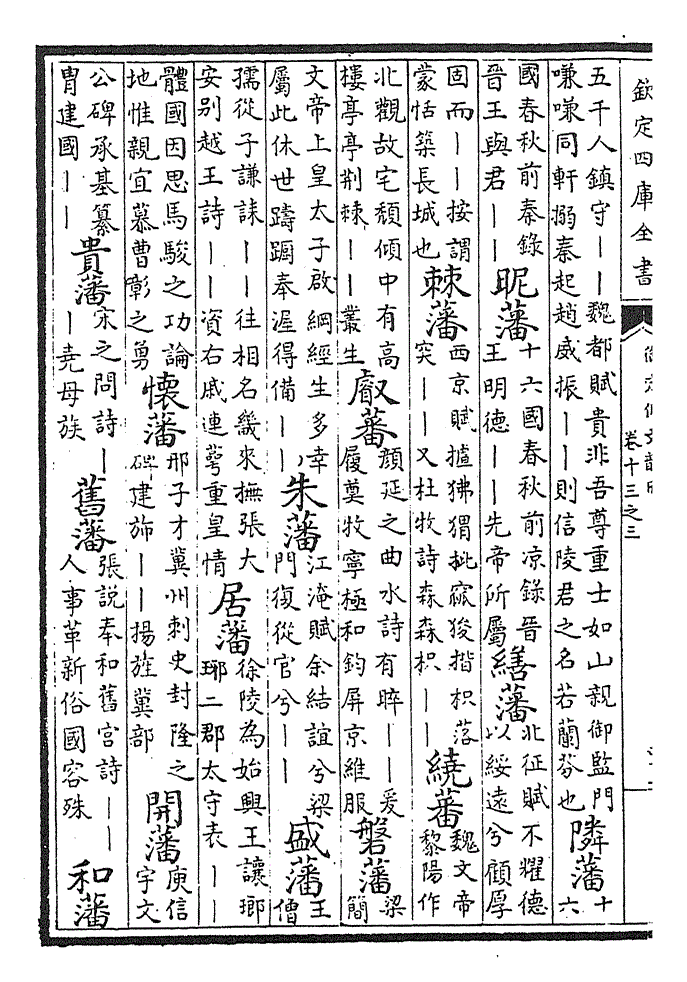 欽定四庫全書
御定佩文韻府
卷十三之三
五千人鎮守｜｜魏都賦貴非吾尊重士如山親御監門
嗛嗛同軒搦秦起趙威振｜｜則信陵君之名若蘭芬也
隣藩
十
六
國春秋前秦錄
晉王與君｜｜
昵藩
十六國春秋前凉錄晉
王明德｜｜先帝所屬
繕藩
北征賦不耀德
以綏遠兮顧厚
固而｜｜按謂
蒙恬築長城也
棘藩
西京賦摣狒猬批窳狻揩枳落
突｜｜又杜牧詩森森枳｜｜
繞蕃
魏文帝
黎陽作
北觀故宅頹傾中有高
樓亭亭荆棘｜｜叢生
叡蕃
顔延之曲水詩有睟｜｜爰
履奠牧寧極和鈞屏京維服
磐藩
梁
簡
文帝上皇太子啟綱經生多幸
屬此休世躊躅奉渥得備｜｜
朱藩
江淹賦余結誼兮梁
門復從官兮｜｜
盛藩
王
僧
孺從子謙誄｜｜往相名幾來撫張大
安别越王詩｜｜資右戚連萼重皇情
居藩
徐陵為始興王讓瑯
琊二郡太守表｜｜
體國因思馬駿之功論
地惟親宜慕曹彰之勇
懷藩
邢子才冀州刺史封隆之
碑建斾｜｜揚旌冀部
開藩
庾信
宇文
公碑承基纂
胄建國｜｜
貴藩
宋之問詩｜
｜堯母族
舊藩
張説奉和舊宫詩｜｜
人事革新俗國容殊
和藩